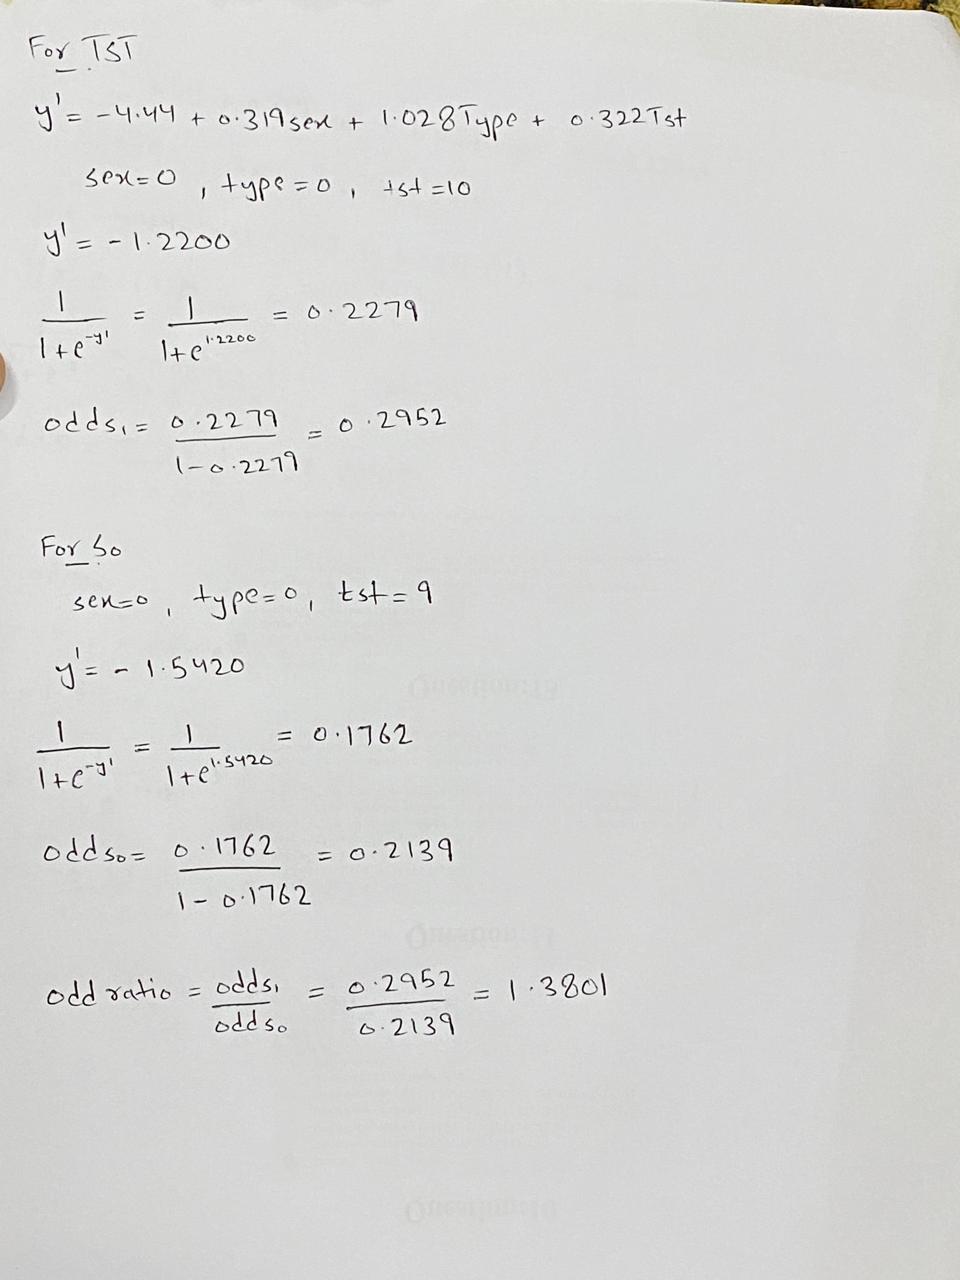 For TST
y' = -4.44 + 0.319 sex + 1.028 Type + 0.322 Tst
sex=0 , type=0 , tst=10
y' = -1.2200
1/(1+e^-y') = 1/(1+e^1.2200) = 0.2279
odds₁ = 0.2279/(1-0.2279) = 0.2952
For So
sex=0 , type=0 , tst=9
y' = -1.5420
1/(1+e^-y') = 1/(1+e^1.5420) = 0.1762
odds₀ = 0.1762/(1-0.1762) = 0.2139
odd ratio = odds₁/odds₀ = 0.2952/0.2139 = 1.3801